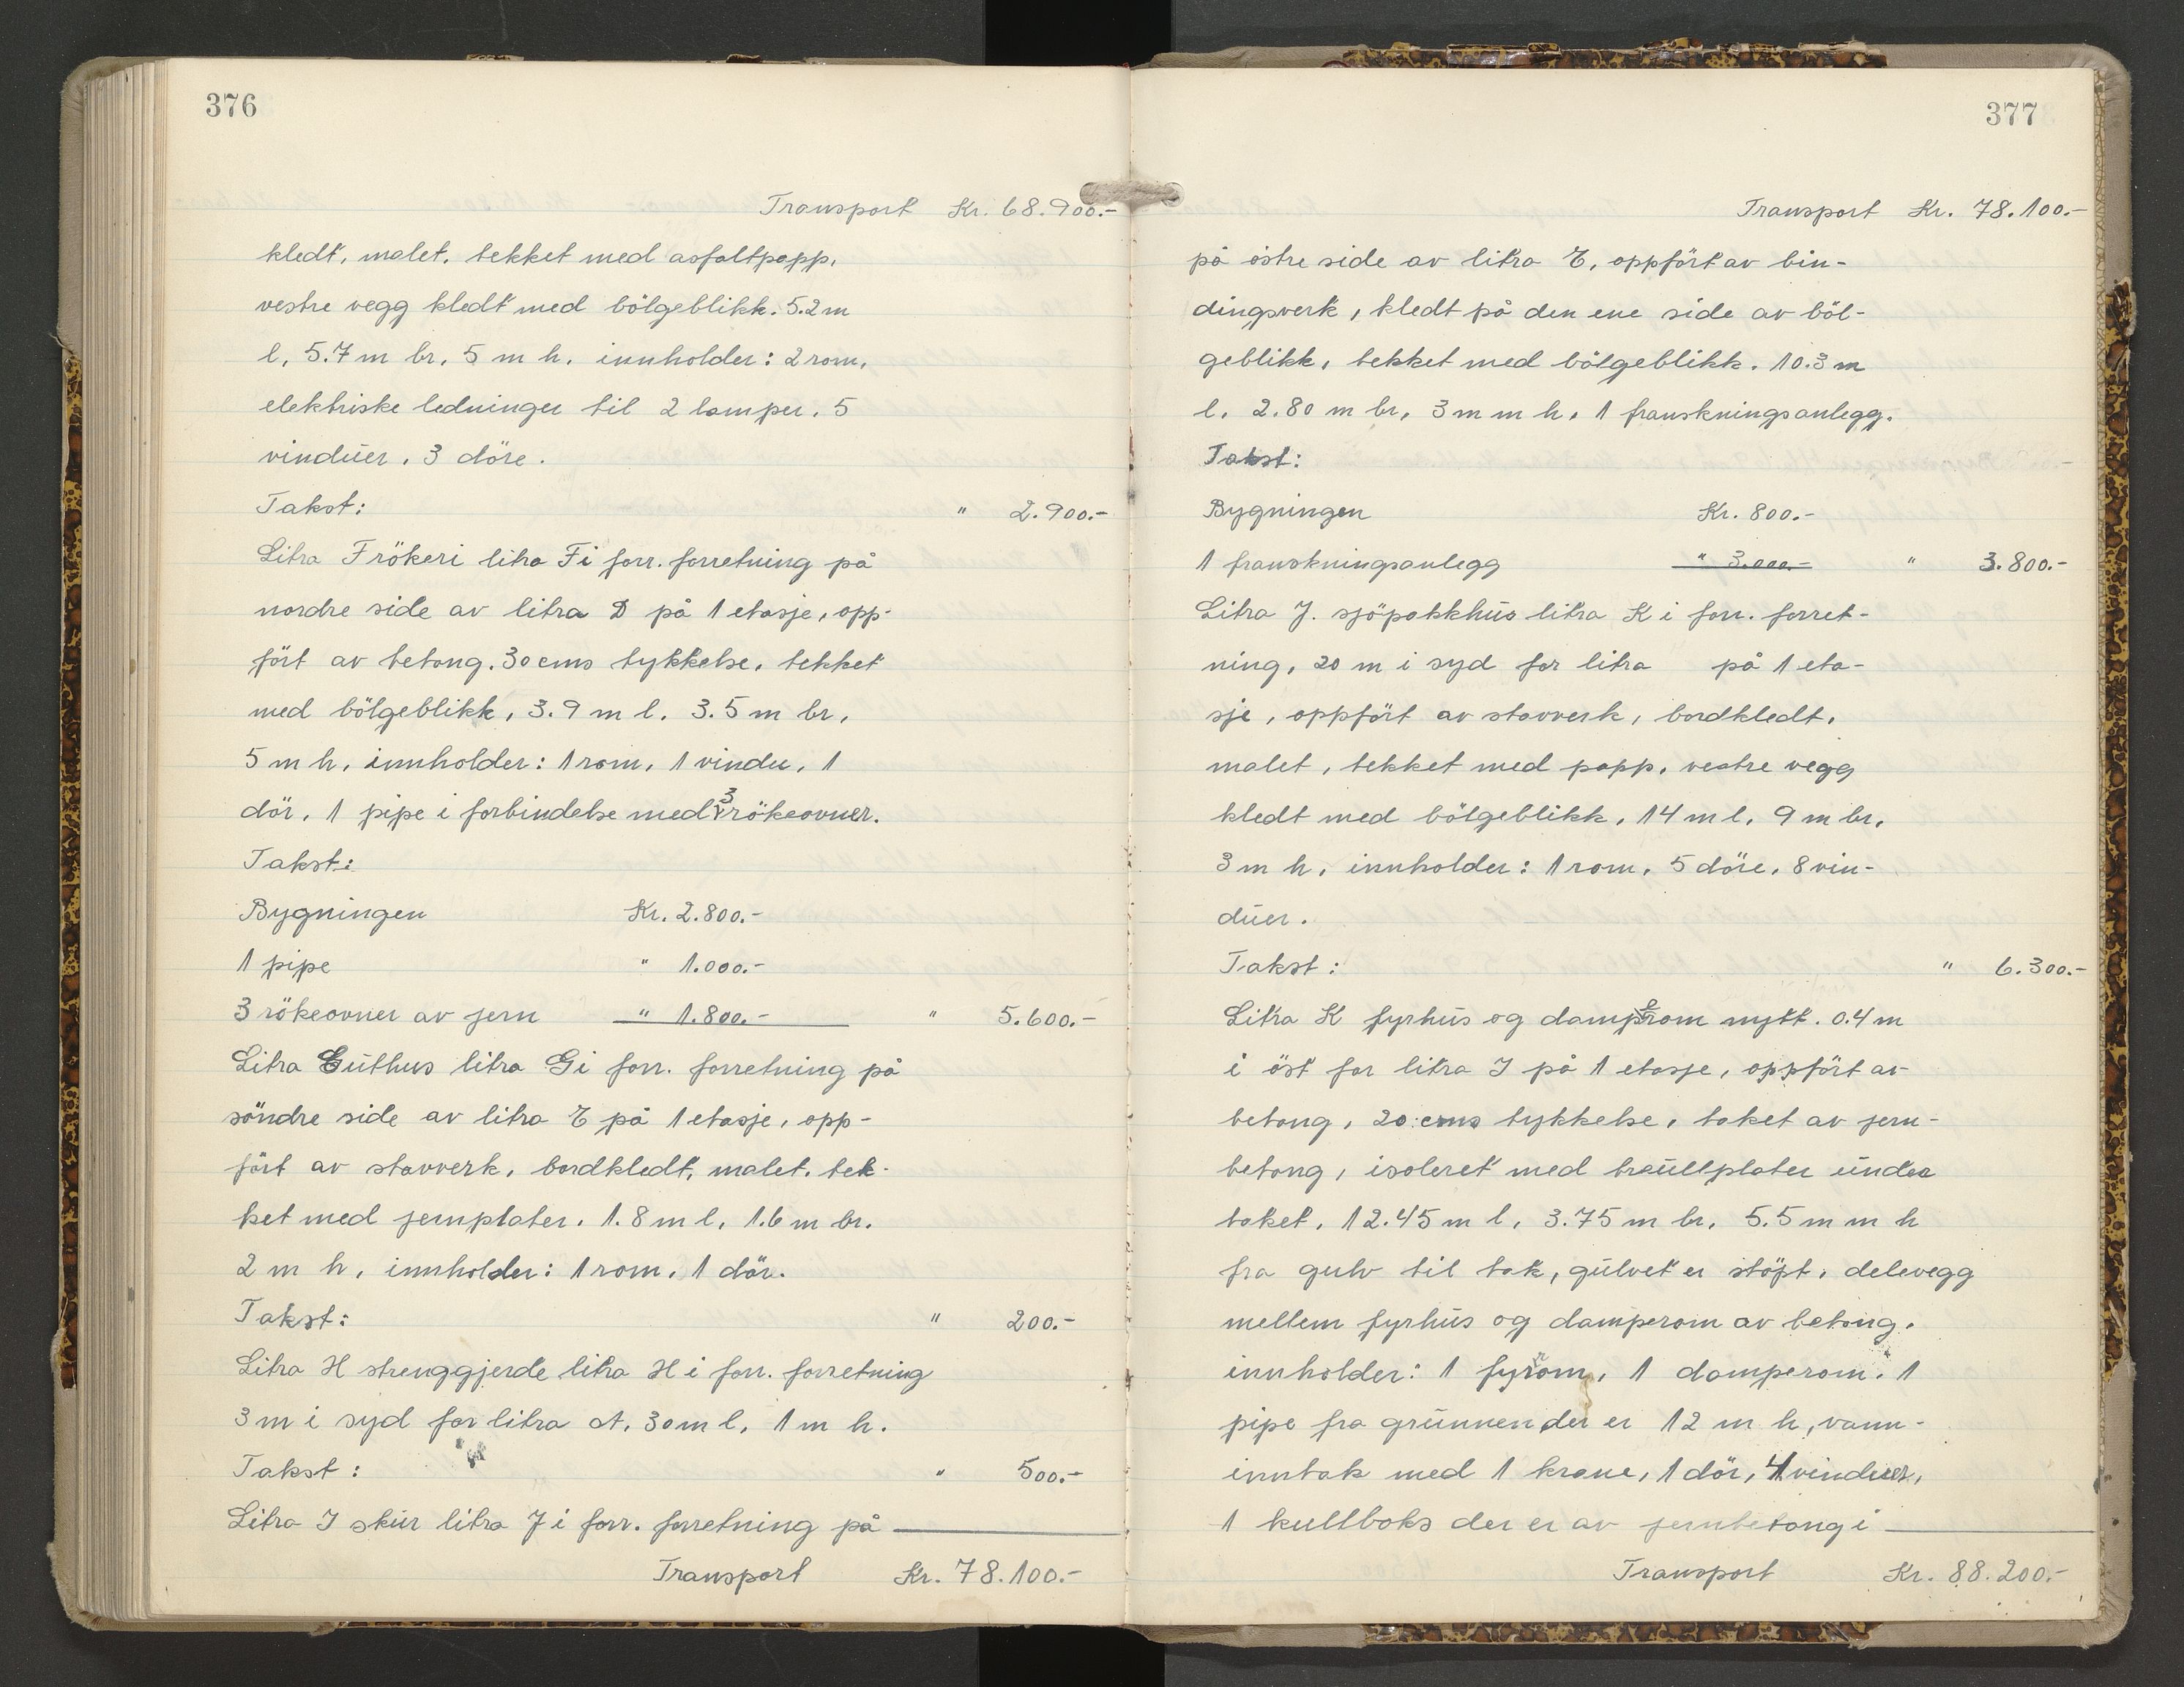 376
Transport Kr. 68.900.-
kledt, malet, tekket med asfaltpapp,
vestre vegg kledt med bölgeblikk. 5.2 m
l, 5.7 m br, 5 m h. innholder: 2 rom,
elektriske ledninger til 2 lamper. 5
vinduer, 3 döre.
Takst: " 2.900.-
Litra F rökeri litra F i forr. forretning på
nordre side av litra D på 1 etasje, opp-
fört av betong. 30 cms tykkelse, tekket
med bölgeblikk, 3.9 m l. 3.5 m br,
5 m h, innholder: 1 rom, 1 vindu, 1
dör, 1 pipe i forbindelse med 3 rökeovner.
Takst:
Bygningen Kr. 2.800.-
1 pipe " 1.000.-
3 rökeovner av jern " 1.800.- " 5.600.-
Litra G uthus litra G i forr. forretning på
söndre side av litra E på 1 etasje, opp-
fört av stavverk, bordkledt, malet, tek-
ket med jernplater. 1.8 m l, 1.6 m br.
2 m h, innholder: 1 rom, 1 dör.
Takst: " 200.-
Litra H strenggjerde litra H i forr. forretning
3 m i syd for litra A, 30 m l, 1 m h.
Takst: " 500.-
Litra I skur litra J i forr. forretning på
Transport Kr. 78.100.-
377
Transport Kr. 78.100.-
på östre side av litra E, oppfört av bin-
dingsverk, kledt på den ene side av böl-
geblikk, tekket med bölgeblikk. 10.3 m
l, 2.80 m br, 3 m m h, 1 franskningsanlegg.
Takst:
Bygningen Kr. 800.-
1 franskningsanlegg " 3.000.- " 3.800.-
Litra J. sjöpakkhus litra K i forr. forret-
ning, 20 m i syd for litra på 1 eta-
sje, oppfört av stavverk, bordkledt,
malet, tekket med papp, vestre vegg
kledt med bölgeblikk, 14 m l, 9 m br,
3 m h, innholder: 1 rom, 5 döre, 8 vin-
duer.
Takst: " 6.300.-
Litra K fyrhus og damperom nytt. 0.4 m
i öst for litra I på 1 etasje, oppfört av
betong, 20 cms tykkelse, taket av jern-
betong, isoleret med traullplater under
taket, 12.45 m l, 3.75 m br, 5.5 m m h
fra gulv til tak, gulvet er stöpt, delevegg
mellem fyrhus og damperom av betong,
innholder: 1 fyrrom, 1 damperom. 1
pipe fra grunnen der er 12 m h, vann-
inntak med 1 krane, 1 dör, 4 vinduer,
1 kullboks der er av jernbetong i
Transport Kr. 88.200.-